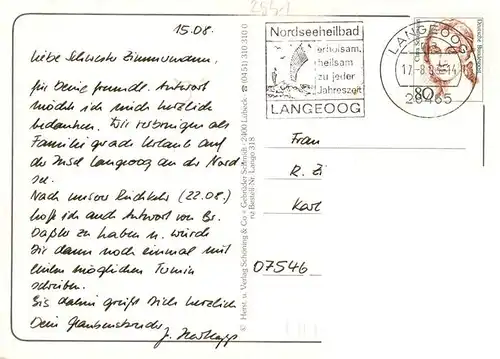 2881
15.08.
Liebe Schwester Zimmermann,
für Deine freundl. Antwort
möchte ich mich herzlich
bedanken. Wir verbringen als
Familie grade Urlaub auf
der Insel Langeoog an der Nord
see.
Nach unserer Rückkehr (22.08.)
hoffe ich auch Antwort von Br.
zu haben u. würde
Dir dann noch einmal mit
einen möglichen Termin
schreiben.
Bis dahin grüßt Dich herzlich
Dein Glaubensbruder
J.
© Herst. u. Verlag Schöning & Co + Gebrüder Schmidt · 2400 Lübeck · ☎ (0451) 31 03 10
Bestell-Nr. Lange 318
Nordseeheilbad
erholsam,
heilsam
zu jeder
Jahreszeit
LANGEOOG
LANGEOOG
26465
Deutsche Bundespost
80
Frau
R. Zi
Karl
07546